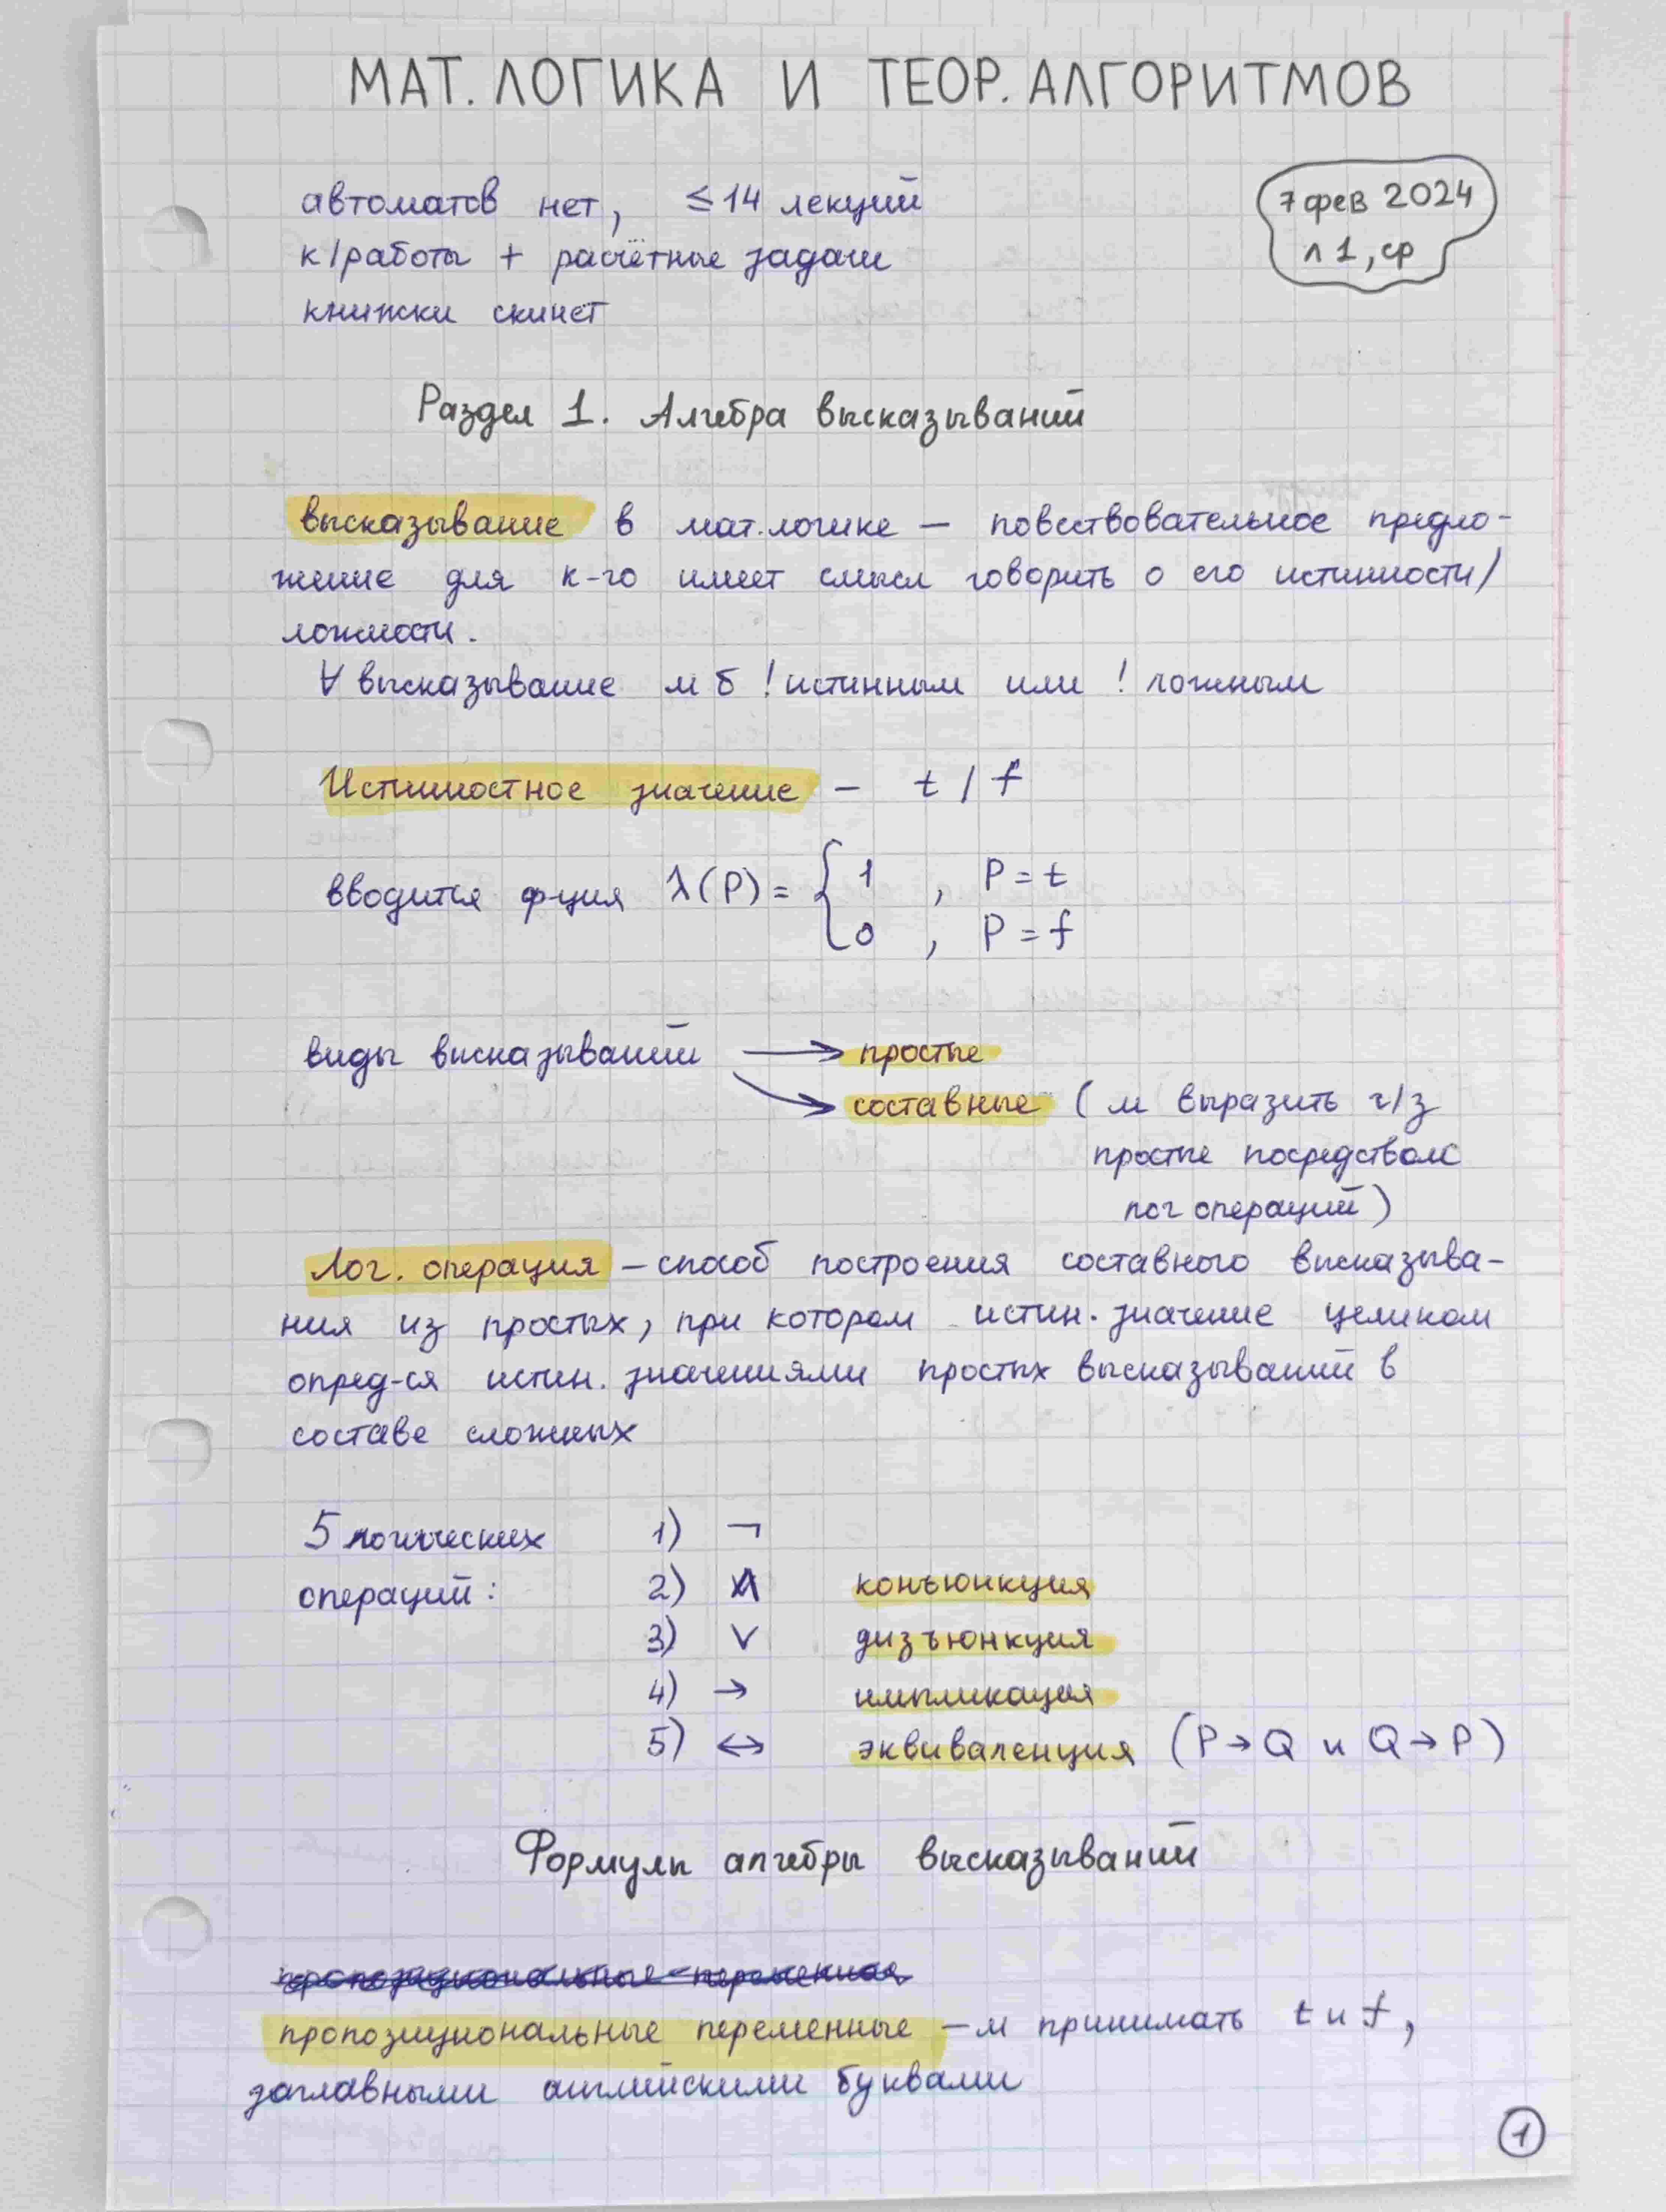 МАТ. ЛОГИКА И ТЕОР. АЛГОРИТМОВ
автоматов нет, ≤ 14 лекций
7 фев 2024
л 1, ср
к/работы + расчётные задачи
книжки скинет
Раздел 1. Алгебра высказываний
высказывание в мат.логике — повествовательное предло-
жение для к-го имеет смысл говорить о его истинности/
ложности.
∀ высказывание м б ! истинным или ! ложным
Истинностное значение – t / f
вводится ф-ция λ(P) = { 1 , P = t
0 , P = f
виды высказываний → простые
→ составные ( м выразить ч/з
простые посредством
лог операций )
Лог. операция – способ построения составного высказыва-
ния из простых, при котором истин. значение целиком
опред-ся истин. значениями простых высказываний в
составе сложных
5 логических
операций :
1) ¬
2) ∧ конъюнкция
3) ∨ дизъюнкция
4) → импликация
5) ↔ эквиваленция (P → Q и Q → P)
Формулы алгебры высказываний
пропозициональные переменная
пропозициональные переменные – м принимать t и f,
заглавными английскими буквами
1